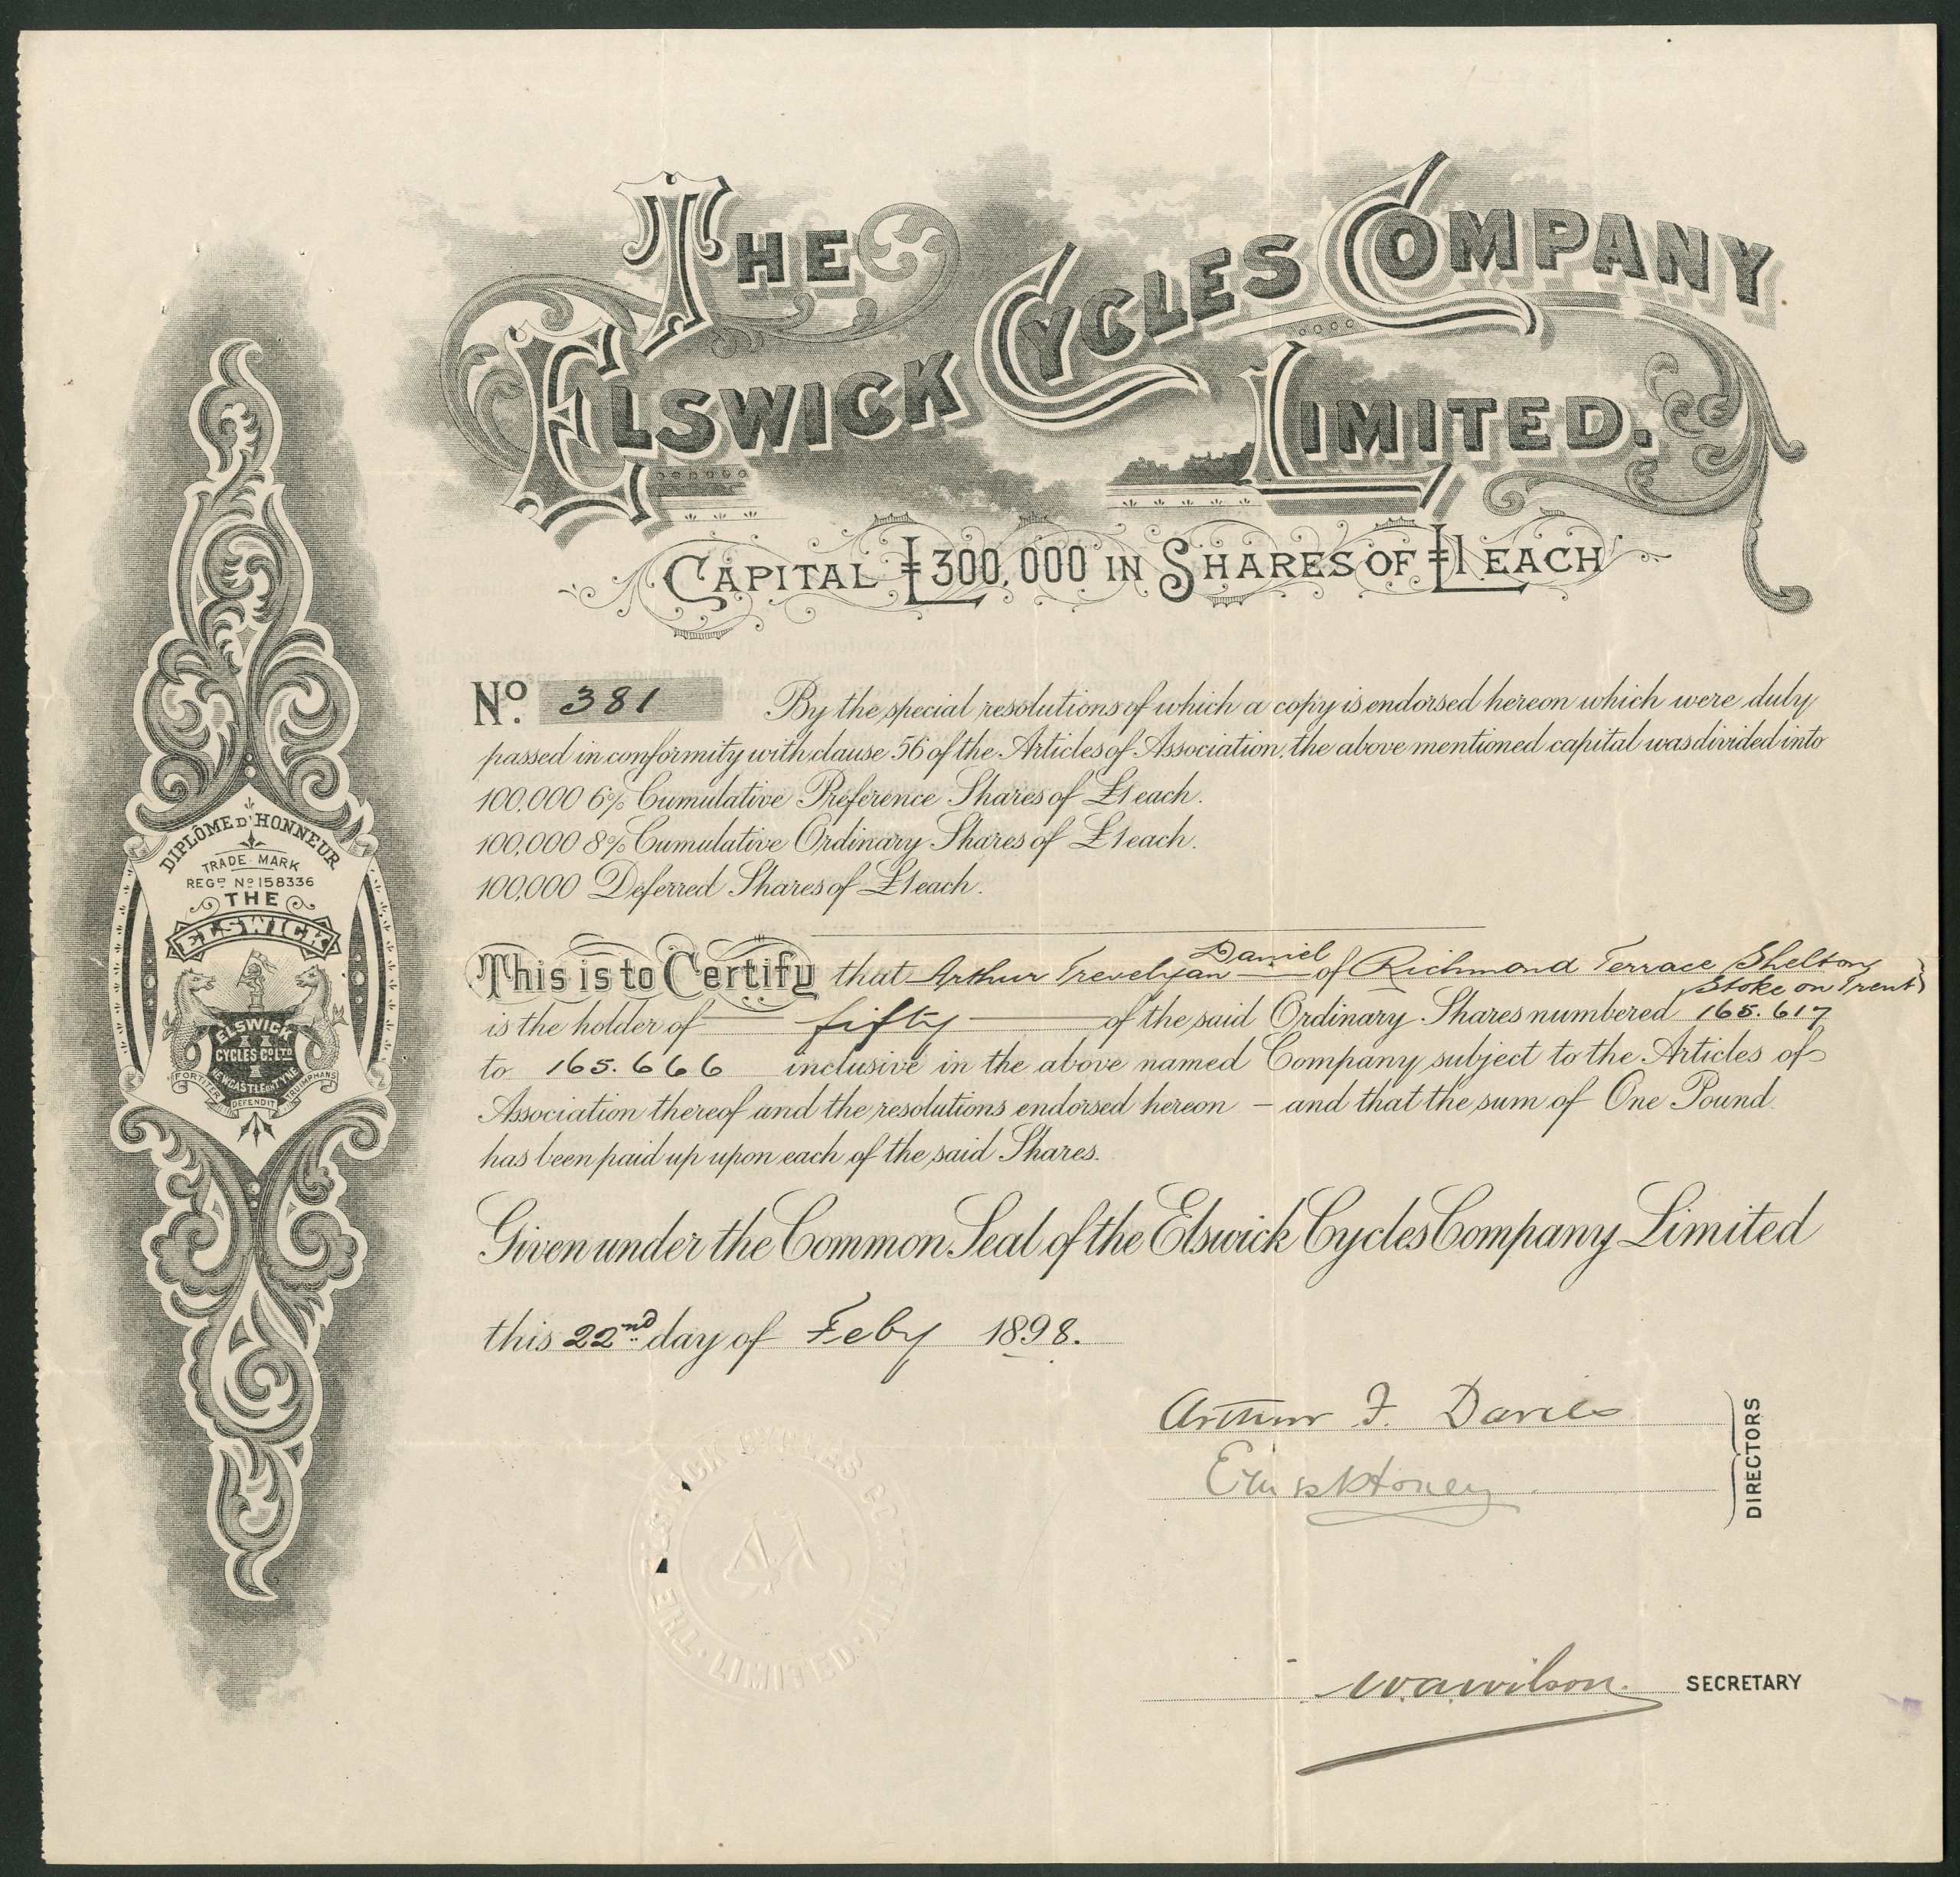 THE
ELSWICK CYCLES COMPANY
LIMITED.
CAPITAL £300,000 IN SHARES OF £1 EACH
No. 381 By the special resolutions of which a copy is endorsed hereon which were duly
passed in conformity with clause 56 of the Articles of Association, the above mentioned capital was divided into
100,000 6% Cumulative Preference Shares of £1 each.
100,000 8% Cumulative Ordinary Shares of £1 each.
100,000 Deferred Shares of £1 each.
This is to Certify that Arthur Trevelyan Daniel of Richmond Terrace Shelton
Stoke on Trent
is the holder of fifty of the said Ordinary Shares numbered 165.617
to 165.666 inclusive in the above named Company subject to the Articles of
Association thereof and the resolutions endorsed hereon – and that the sum of One Pound
has been paid up upon each of the said Shares.
Given under the Common Seal of the Elswick Cycles Company Limited
this 22nd day of Feby 1898.
Arthur F. Davies
DIRECTORS
W.A. Wilson. SECRETARY
DIPLÔME D'HONNEUR
TRADE MARK
REGD No 158336
THE
ELSWICK
ELSWICK
CYCLES Co LTD
NEWCASTLE ON TYNE
FORTITER DEFENDIT TRIUMPHANS
THE ELSWICK CYCLES COMPANY LIMITED